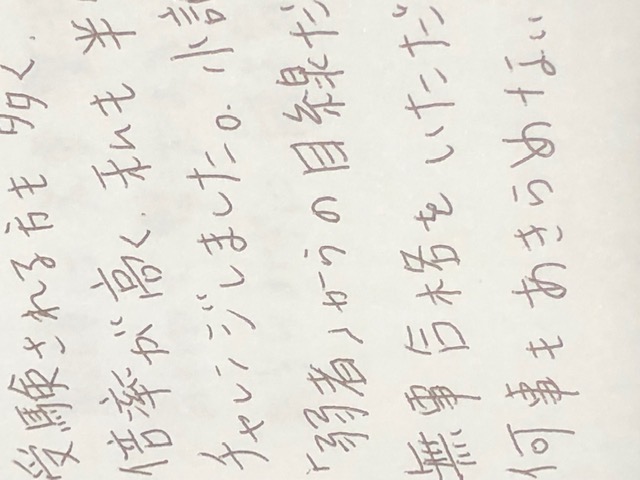 受験される方も 多く.
倍率が高く. 私も
チャレンジしました。小
「弱者」からの目線だ
無事合格を いただ
何事も あきらめない